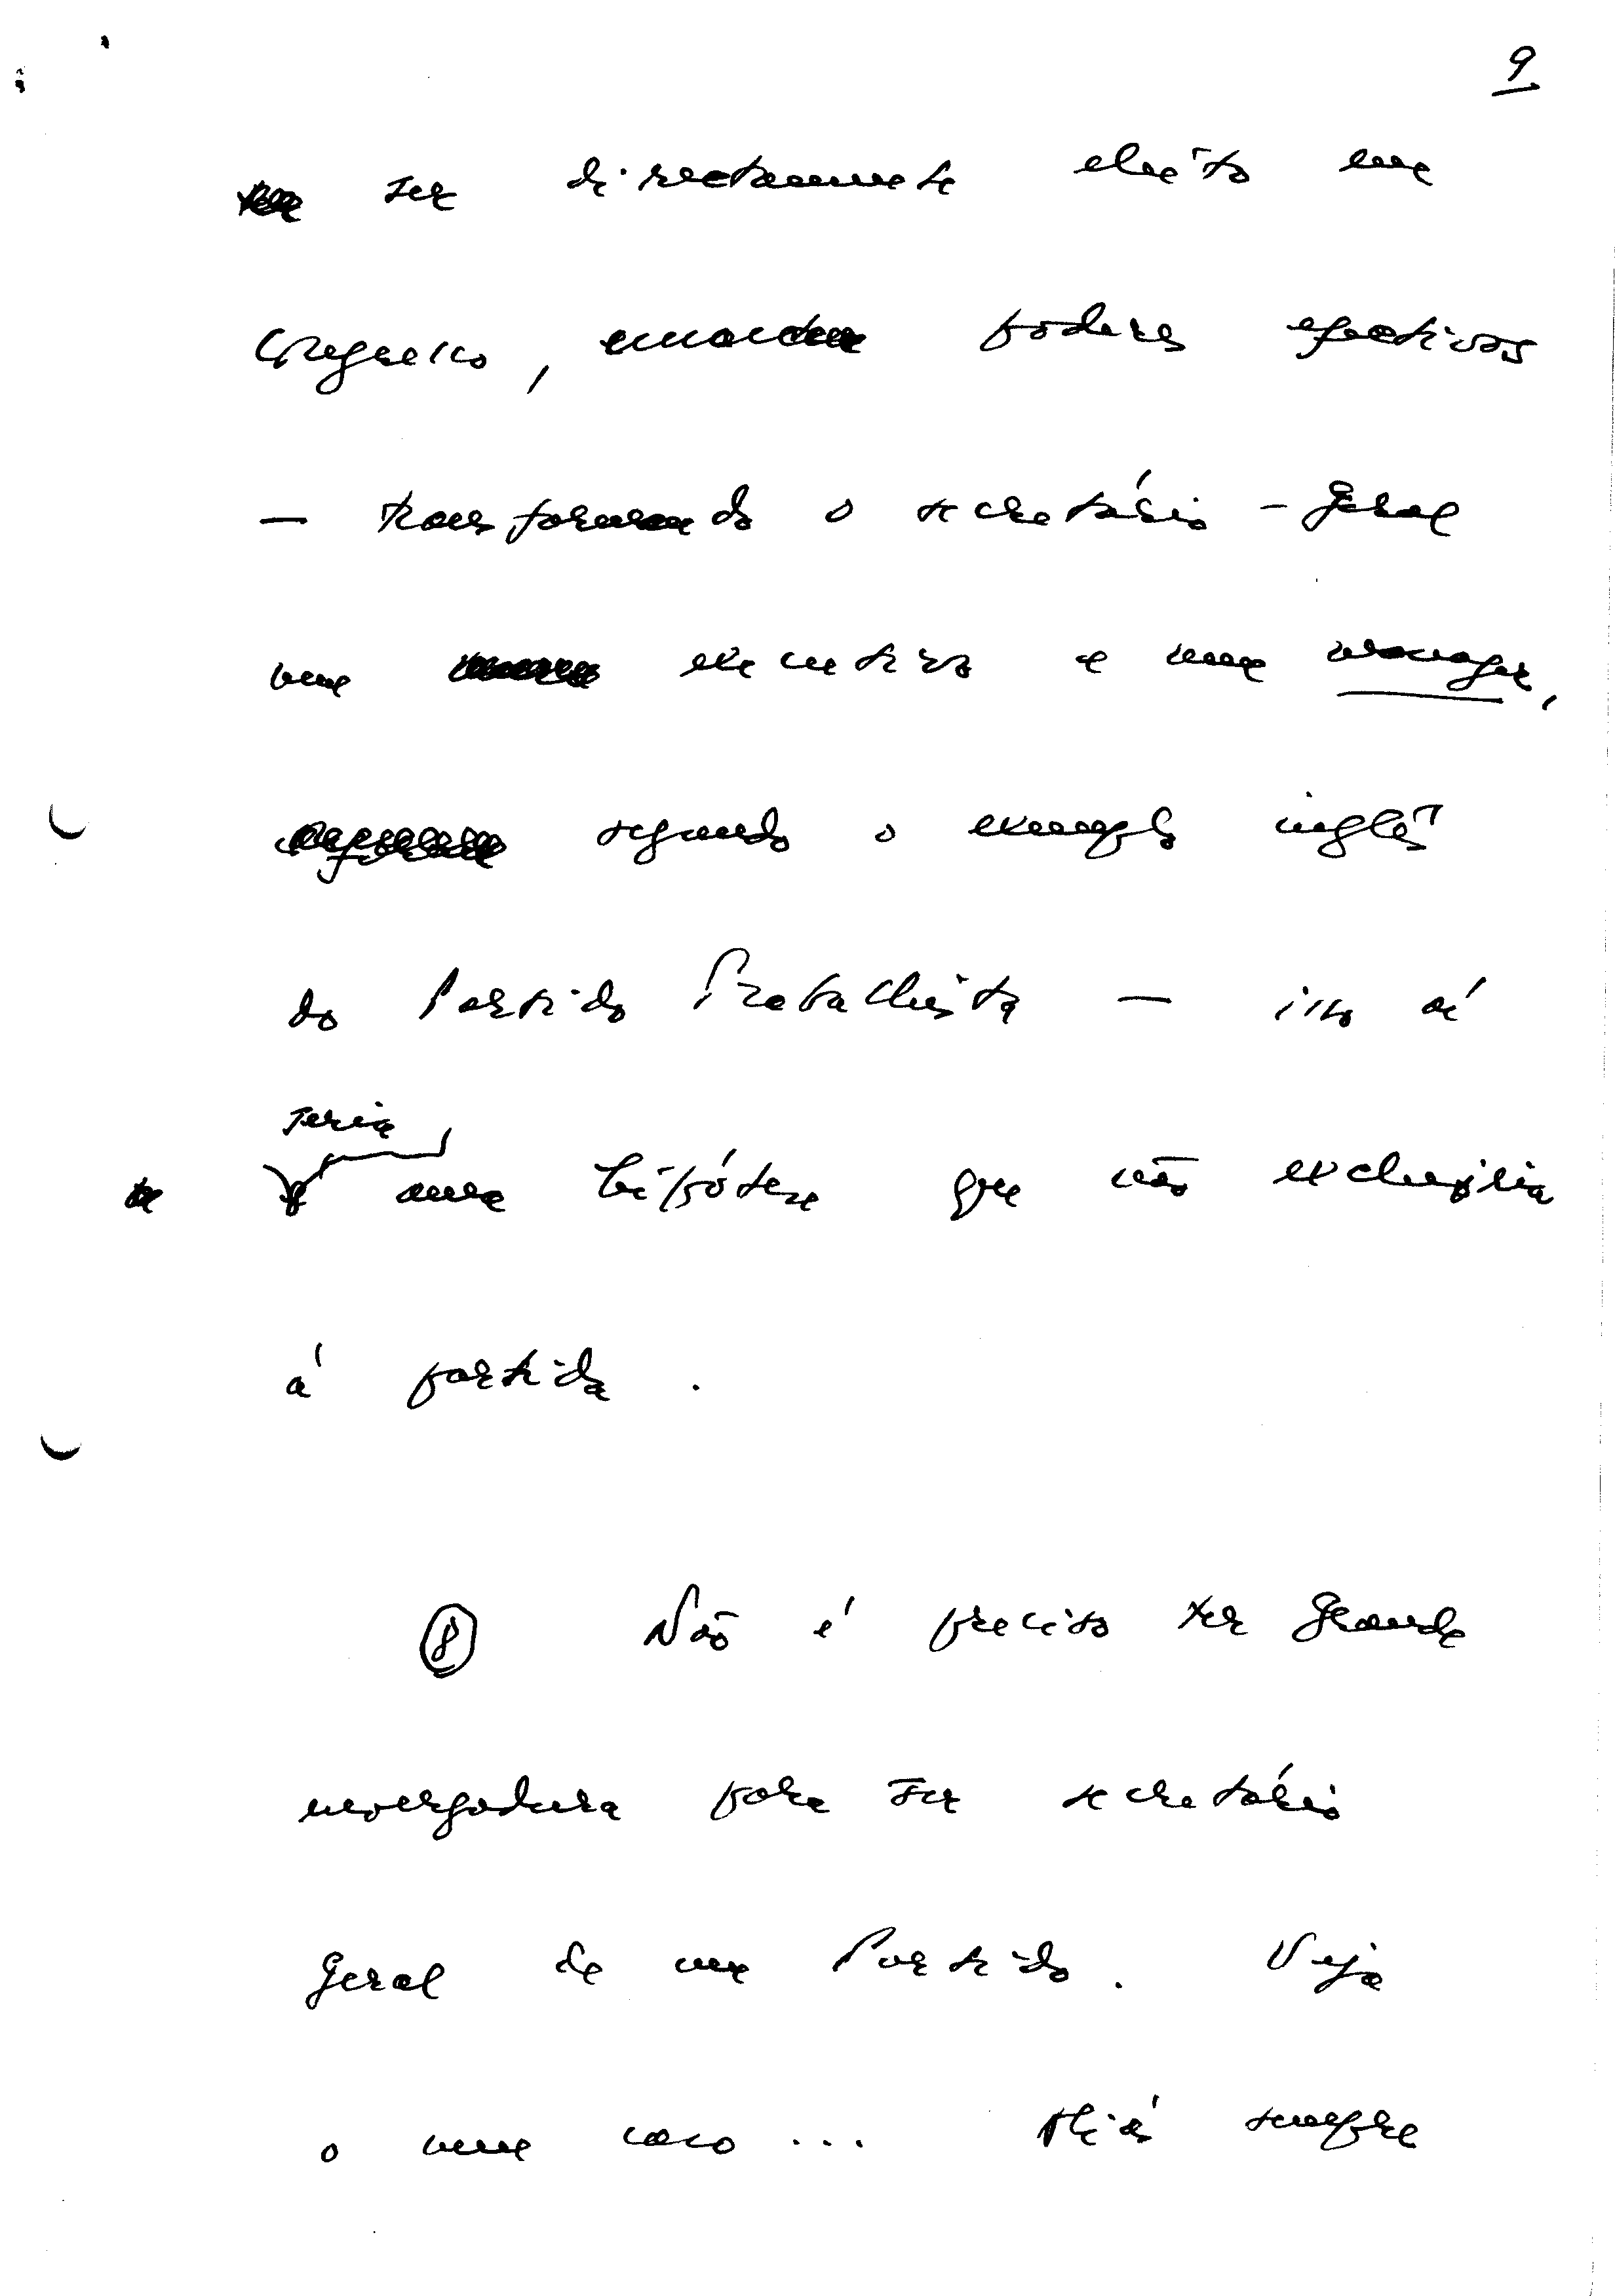 9
ser directamente eleito em
Congresso, poderes efectivos
— transformando o secretário-geral
num executivo e num manager,
segundo o exemplo inglês
do Partido Trabalhista — isso aí
seria
uma hipótese que não excluiria
à partida.
8 Não é preciso ter grande
envergadura para ser secretário
geral de um Partido. Veja
o meu caso... Aliás sempre